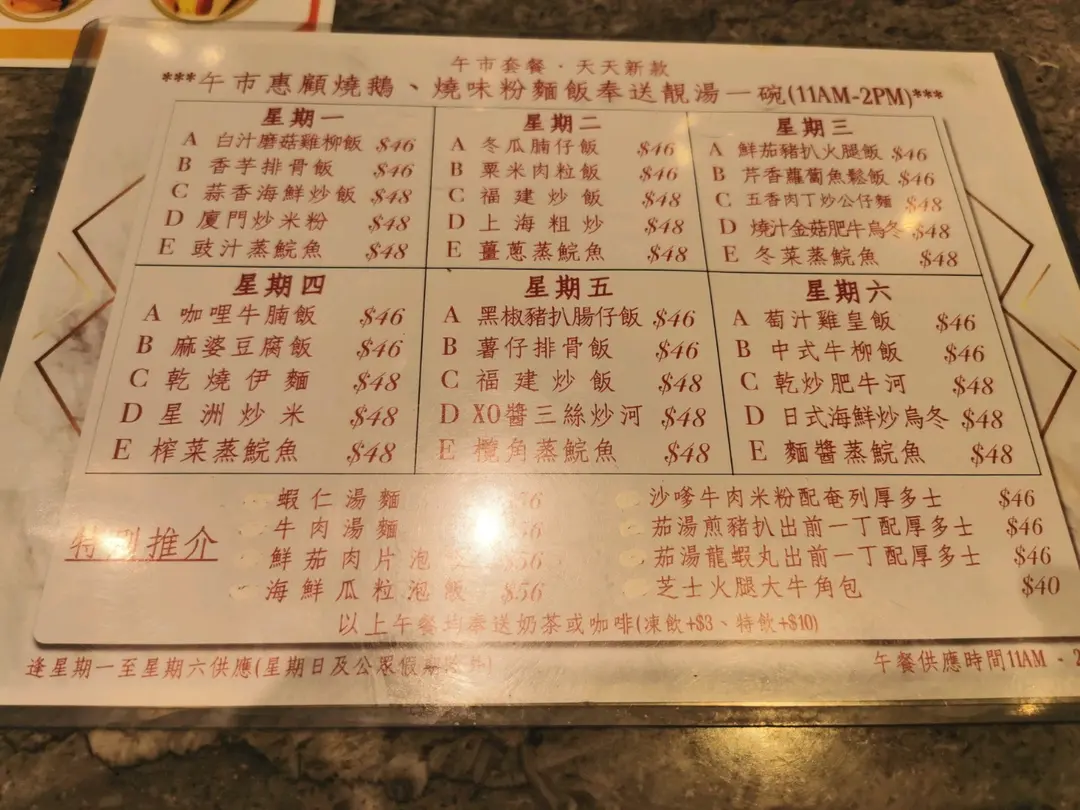 午市套餐·天天新款
***午市惠顧燒鵝、燒味粉麵飯奉送靚湯一碗(11AM-2PM)***
星期一
A 白汁磨菇雞柳飯 $46
B 香芋排骨飯 $46
C 蒜香海鮮炒飯 $48
D 廈門炒米粉 $48
E 豉汁蒸鯇魚 $48
星期二
A 冬瓜腩仔飯 $46
B 粟米肉粒飯 $46
C 福建炒飯 $48
D 上海粗炒 $48
E 薑蔥蒸鯇魚 $48
星期三
A 鮮茄豬扒火腿飯 $46
B 芹香蘿蔔魚鬆飯 $46
C 五香肉丁炒公仔麵 $48
D 燒汁金菇肥牛烏冬 $48
E 冬菜蒸鯇魚 $48
星期四
A 咖哩牛腩飯 $46
B 麻婆豆腐飯 $46
C 乾燒伊麵 $48
D 星洲炒米 $48
E 榨菜蒸鯇魚 $48
星期五
A 黑椒豬扒腸仔飯 $46
B 薯仔排骨飯 $46
C 福建炒飯 $48
D XO醬三絲炒河 $48
E 欖角蒸鯇魚 $48
星期六
A 萄汁雞皇飯 $46
B 中式牛柳飯 $46
C 乾炒肥牛河 $48
D 日式海鮮炒烏冬 $48
E 麵醬蒸鯇魚 $48
特別推介
蝦仁湯麵
牛肉湯麵
鮮茄肉片泡 $56
海鮮瓜粒泡飯 $56
沙嗲牛肉米粉配奄列厚多士 $46
茄湯煎豬扒出前一丁配厚多士 $46
茄湯龍蝦丸出前一丁配厚多士 $46
芝士火腿大牛角包 $40
以上午餐均奉送奶茶或咖啡(凍飲+$3、特飲+$10)
逢星期一至星期六供應(星期日及公眾假期除外)
午餐供應時間11AM - 2